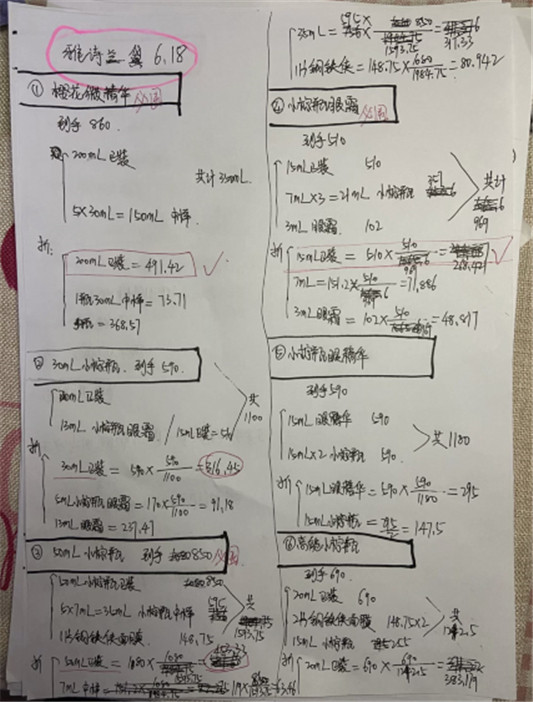 雅诗兰黛 6.18
① 樱花微精华 必囤
到手 860.
200mL正装
共计350mL
5×30mL=150mL 中样.
折:
200mL正装 = 491.42 ✓
1瓶30mL中样 = 73.71
= 368.57
② 30mL小棕瓶. 到手 590.
30mL正装
共
1100
/15mL正装=510
折
30mL正装 = 590×590/1100 = 316.45
5mL小棕瓶眼霜 = 170×590/1100 = 91.18
= 237.47
③ 50mL小棕瓶 到手 850 必囤
50mL小棕瓶正装 850
5×7mL=35mL 小棕瓶中样 595
共
1593.75
1片钢铁侠面膜 148.75
折
50mL正装 = 453.33
7mL中样 = 63.46
35mL = 595×850/1593.75 = 317.33
1片钢铁侠 = 148.75×680/1984.75 = 80.942
④ 小棕瓶眼霜 必囤
到手510
15mL正装 510
7mL×3=21mL 小棕瓶 357
共计
969
3mL眼霜 102
折
15mL正装 = 510×510/969 = 268.421 ✓
7mL = 151.2×510 = 71.886
3mL眼霜 = 102×510 = 48.817
⑤ 小棕瓶眼精华
到手590
15mL眼精华 590
15mL×2 小棕瓶 590.
共1180
折
15mL眼精华 = 590×590/1180 = 295
15mL小棕瓶 = 295/2 = 147.5
⑥ 高能小棕瓶
到手690.
20mL正装 690
2片钢铁侠面膜 148.75×2
共
15mL 小棕瓶 255
折
20mL正装 = 690×690 = 383.119